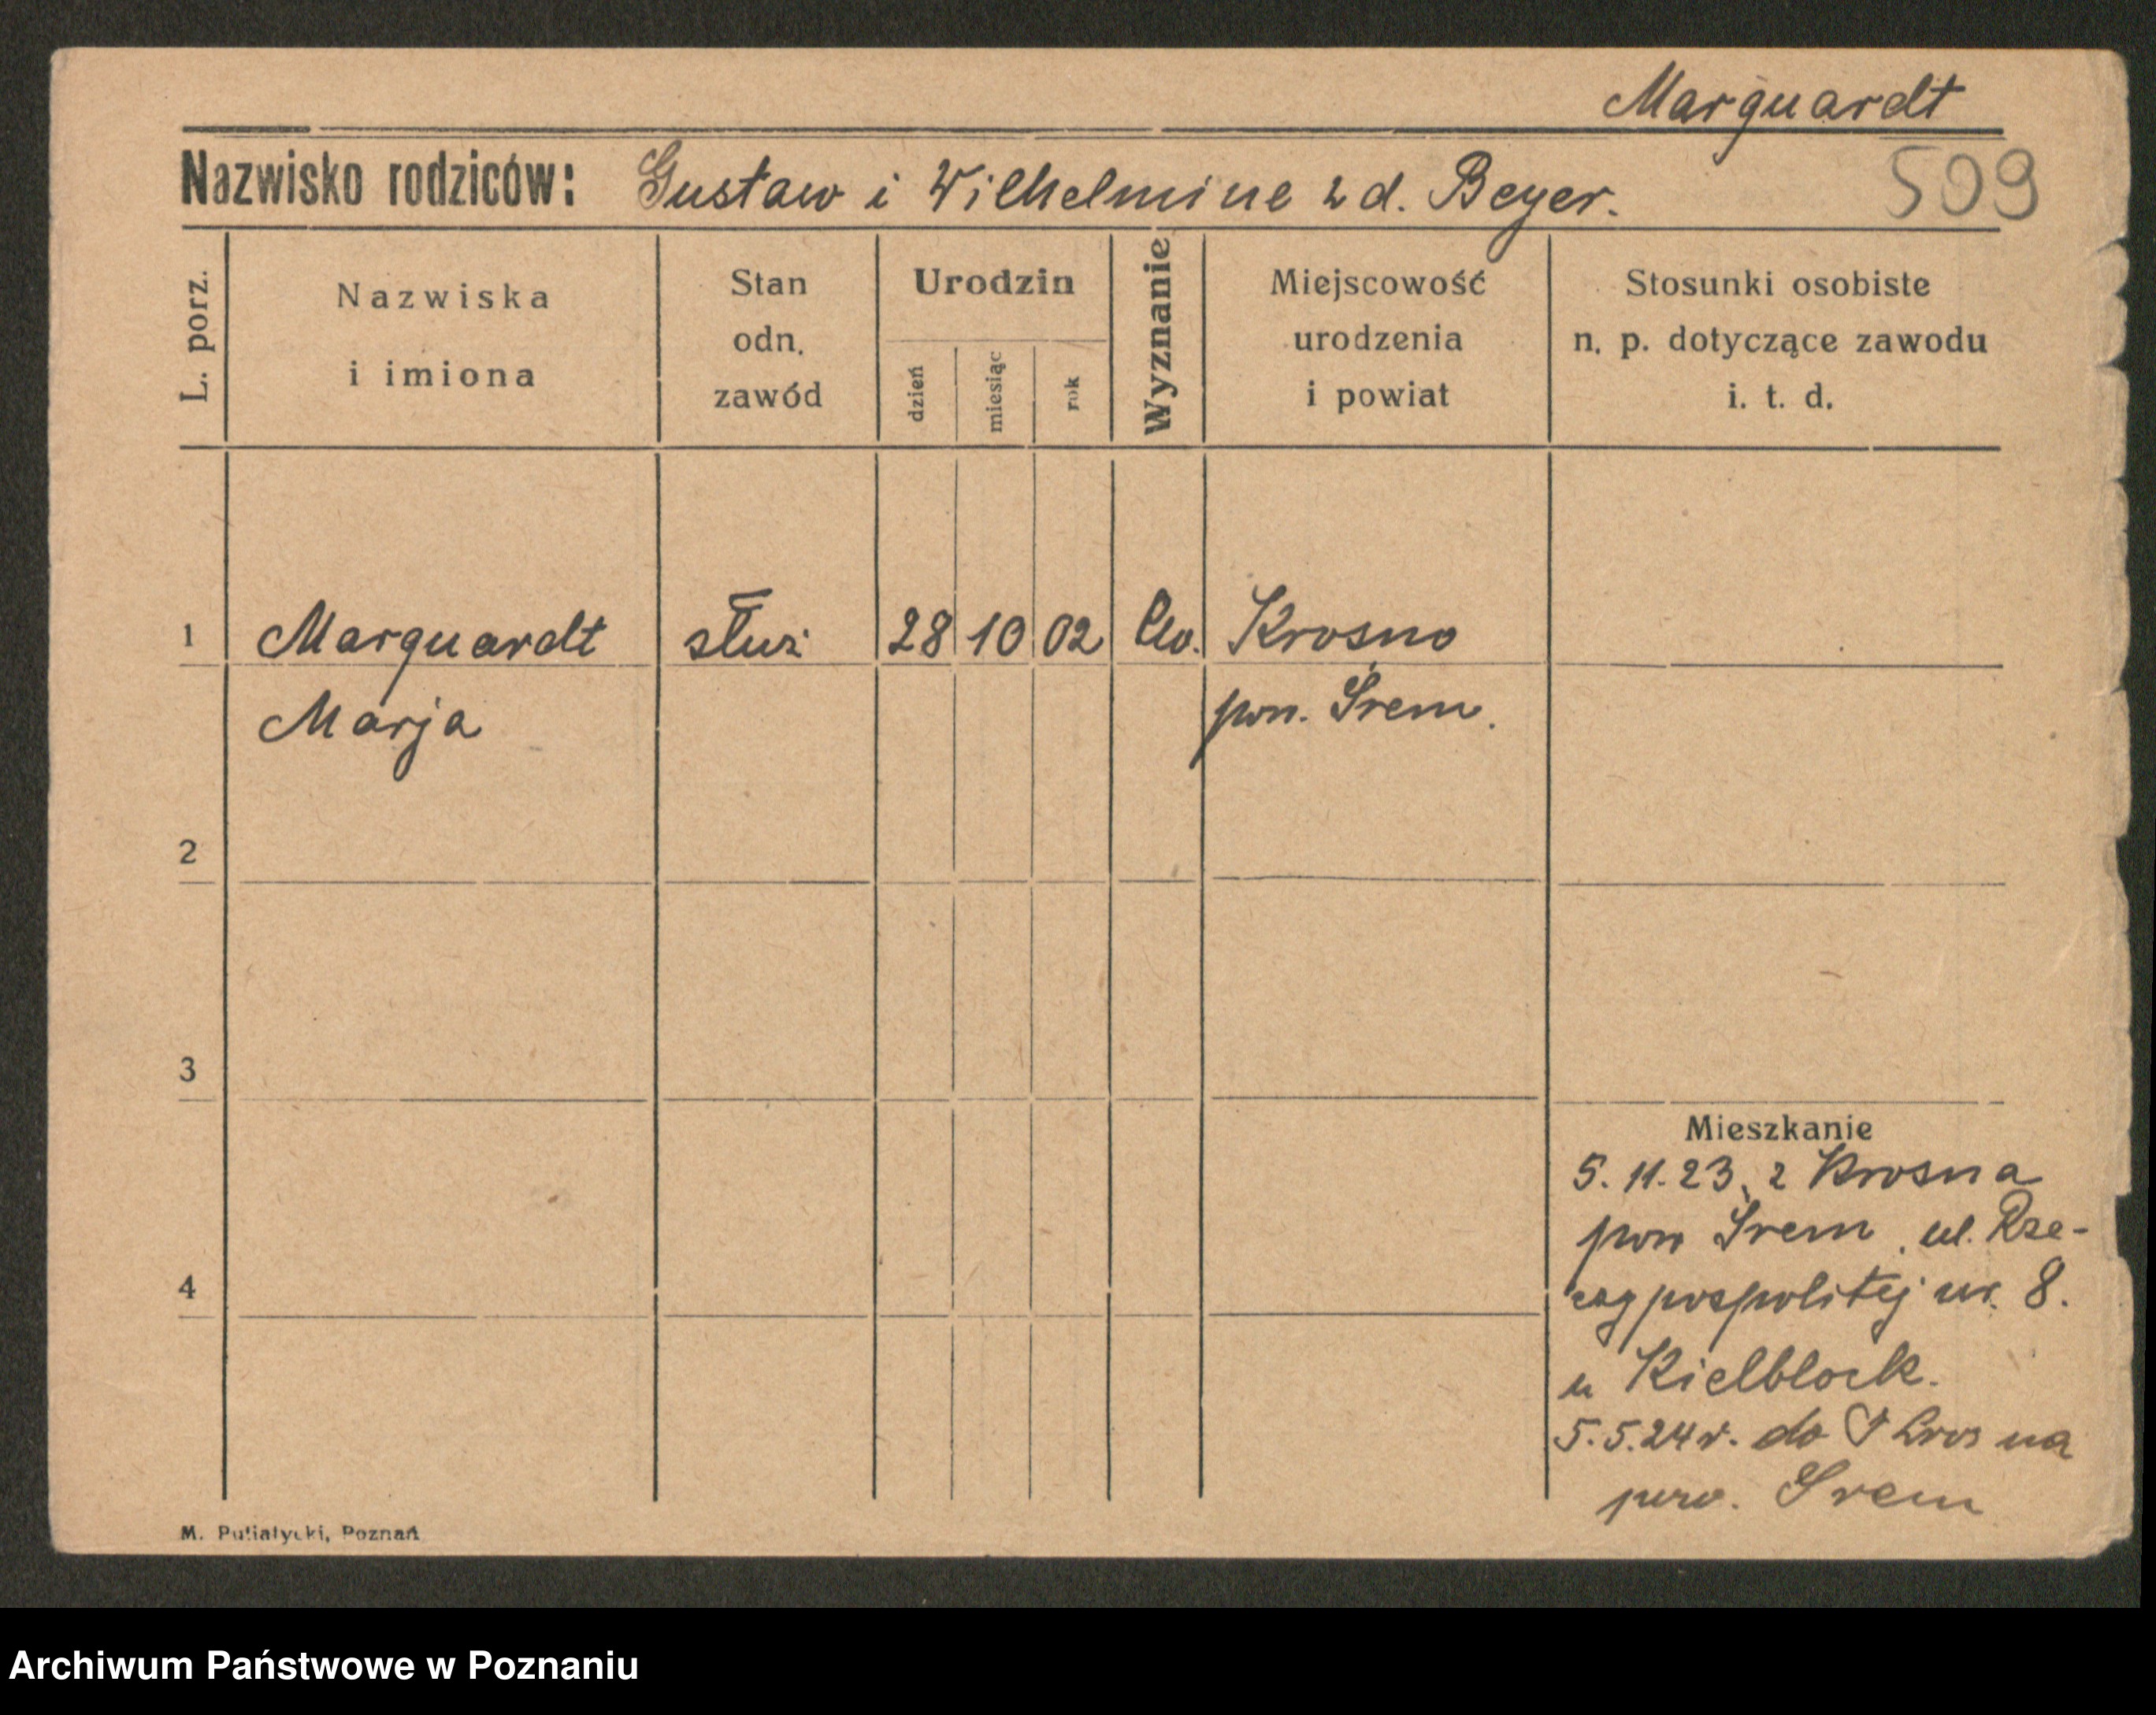 Marquardt
Nazwisko rodziców: Gustaw i Wilhelmine z d. Beyer. 509
L. porz.
Nazwiska
i imiona
Stan
odn.
zawód
Urodzin
dzień
miesiąc
rok
Wyznanie
Miejscowość
urodzenia
i powiat
Stosunki osobiste
n. p. dotyczące zawodu
i. t. d.
1 Marquardt służ 28 10 02 Ew. Krosno
Marja pow. Śrem.
2
3
4
Mieszkanie
5. 11. 23, z Krosna
pow Śrem, ul. Rze-
czypospolitej nr. 8.
u Kielblock.
5. 5. 24 r. do Krosna
pow. Śrem
M. Putiatycki, Poznań
Archiwum Państwowe w Poznaniu